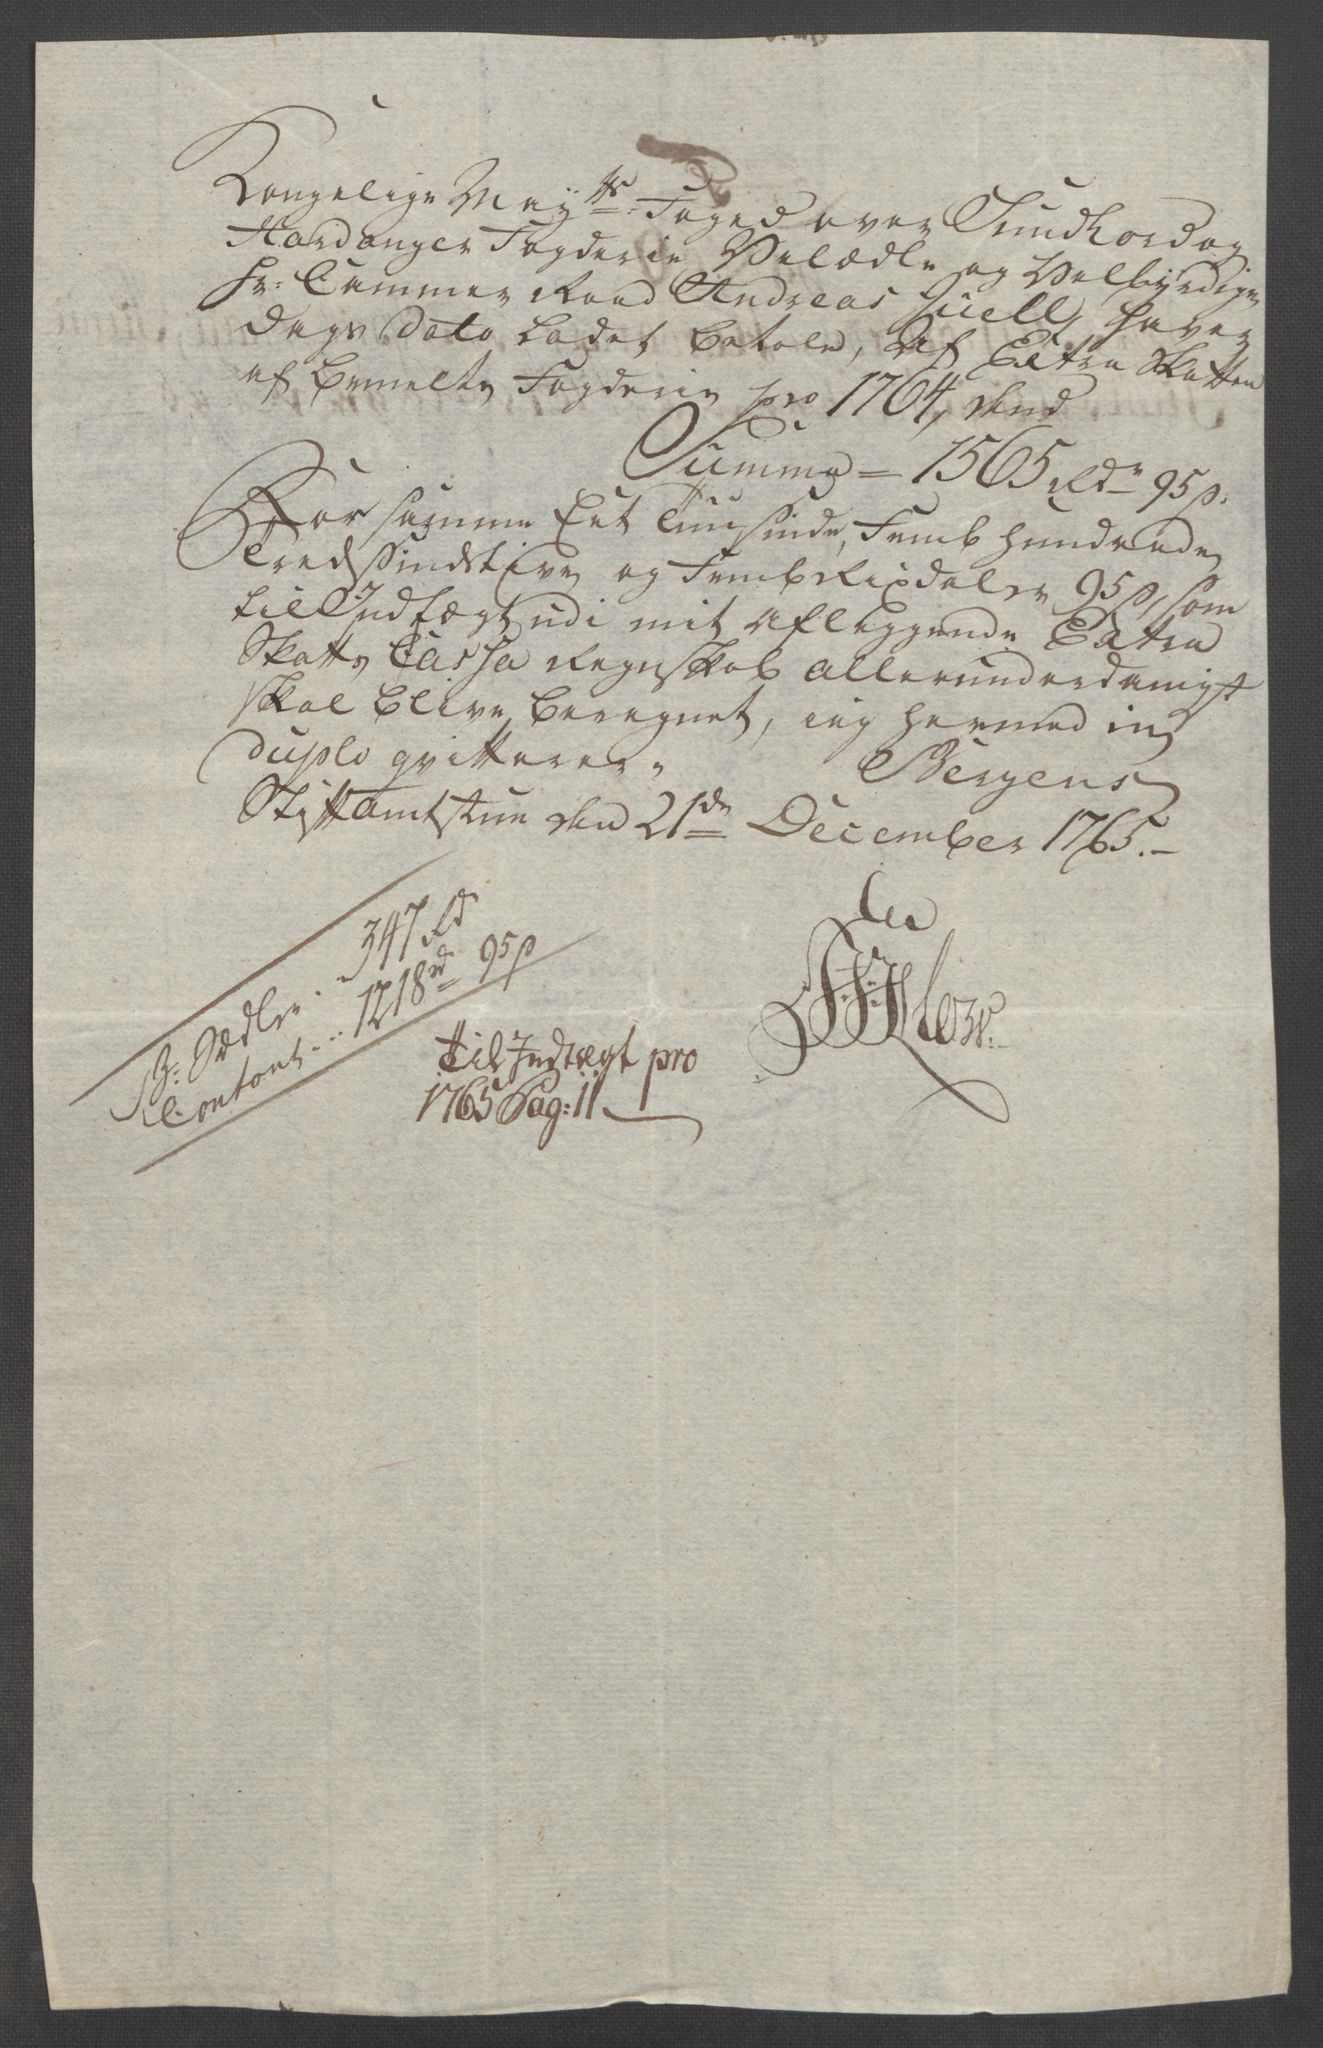 Kongelige Mayts: Foged over Sundhord og
Hardanger Fogderie Velædle og Velbyrdige
Hr: Cammer Raad Andreas Juell, haver
dags dato ladet betale, af Extra Skatten
af bemelte Fogderie pro 1764, den
Summa = 1565 Rdr 95 s.
For samme Eet Tuusinde, Femb hundrede
Tredssindstive og Femb Rixdaler 95 s, som
til Indtægt udi mit aflæggende Extra
Skatts Cassa Regnskab allerunderdanigst
skal blive beregnet, ieg hermed in
duplo qvitterer.
Bergens
Stiftamtstue den 21de December 1765.
B: Sedler . . 347 Rd
Contant . . . 1218 rd 95 s
Til Indtægt pro
1765 Pag: 11